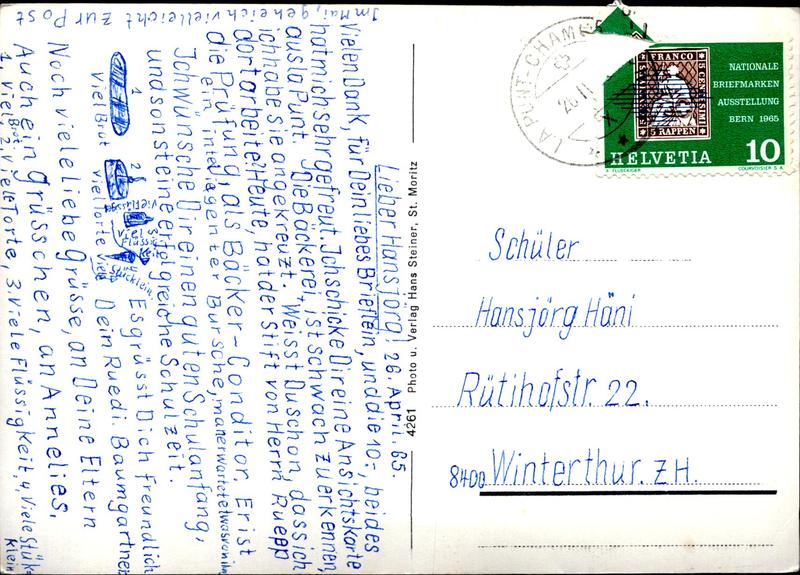 Lieber Hansjörg! 26. April. 65.
Vielen Dank, für Dein liebes Brieflein, und die 10-, beides
hat mich sehr gefreut. Ich schicke Dir eine Ansichtskarte
aus la Punt. Die Bäckerei, ist schwach zu erkennen,
ich habe sie angekreuzt. Weisst Du schon, dass ich
dort arbeite? Heute, hat der Stift von Herrn Ruepp
die Prüfung, als Bäcker-Conditor. Er ist
ein intelagenter Bursche, man erwartet etwas von ihm
Ich wünsche Dir einen guten Schulanfang,
und sonst eine erfolgreiche Schulzeit.
Es grüsst Dich freundlich
Dein Ruedi Baumgartner
1
Viel Brot
2
Viel Torte
Viel Flüssigkeit
Viele Stücklein
Noch viele liebe Grüsse, an Deine Eltern
Auch ein Grüsschen, an Annelies.
1. Viel Brot. 2. Viele Torte, 3. Viele Flüssigkeit, 4. Viele Stük-
klein
Im Mai, gehe ich vielleicht zur Post
4261 Photo u. Verlag Hans Steiner, St. Moritz
LA PUNT-CHAMUE
26.IV
X
FRANCO
5 CENTESIMI
5 RAPPEN
NATIONALE
BRIEFMARKEN
AUSSTELLUNG
BERN 1965
HELVETIA 10
COURVOISIER S.A.
Schüler
Hansjörg Häni
Rütihofstr. 22.
8400 Winterthur. ZH.